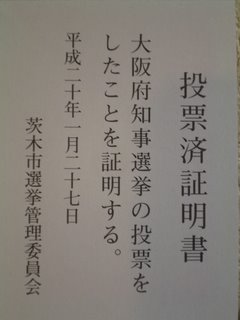 投票済証明書
大阪府知事選挙の投票を
したことを証明する。
平成二十年一月二十七日
茨木市選挙管理委員会